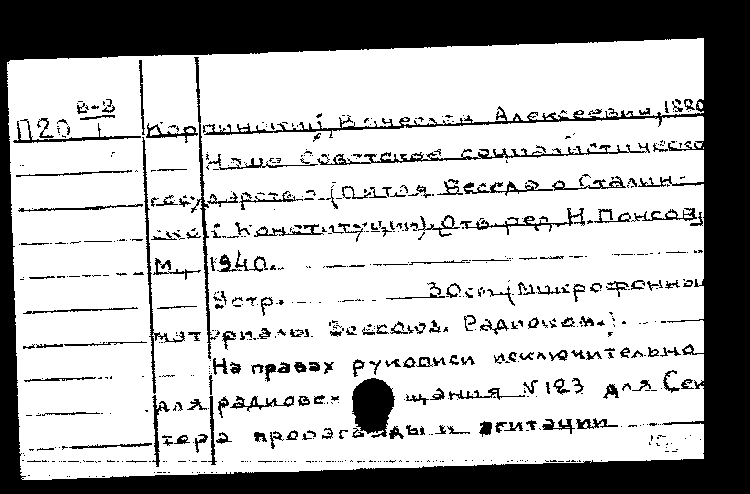 В-8
П20 1 Карпинский, Вячеслав Алексеевич, 1880
Наше Советское социалистическо
государство (Пятая беседа о Сталин-
ской Конституции). Отв. ред. Н. Понсов,
М., 1940.
9 стр. 30 см (Микрофонны
материалы Всесоюз. Радиоком.).
На правах рукописи исключительно
для радиовещания N 183 для Сек
тора пропаганды и агитации